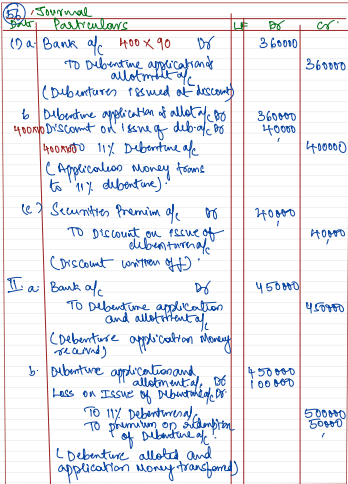 56 Journal
Date Particulars LF Dr Cr
(1) a. Bank a/c 400 x 90 Dr 360000
To Debenture application &
allotment a/c 360000
(Debentures issued at discount)
b Debenture application & allot a/c Dr 360000
400x10 Discount on issue of deb. a/c Dr 40000
400x100 To 11% Debenture a/c 400000
(Application money trans
to 11% debenture).
(c) Securities Premium a/c Dr 40000
To Discount on issue of
debenture a/c 40,000
(Discount written off).
II. a. Bank a/c Dr 450000
To Debenture application
and allotment a/c 450000
(Debenture application money
received)
b. Debenture application and
allotment a/c Dr 450000
Loss on Issue of Debenture a/c Dr. 100000
To 11% Debenture a/c 500000
To premium on redemption
of Debenture a/c. 50000
(Debenture alloted and
application money transferred)